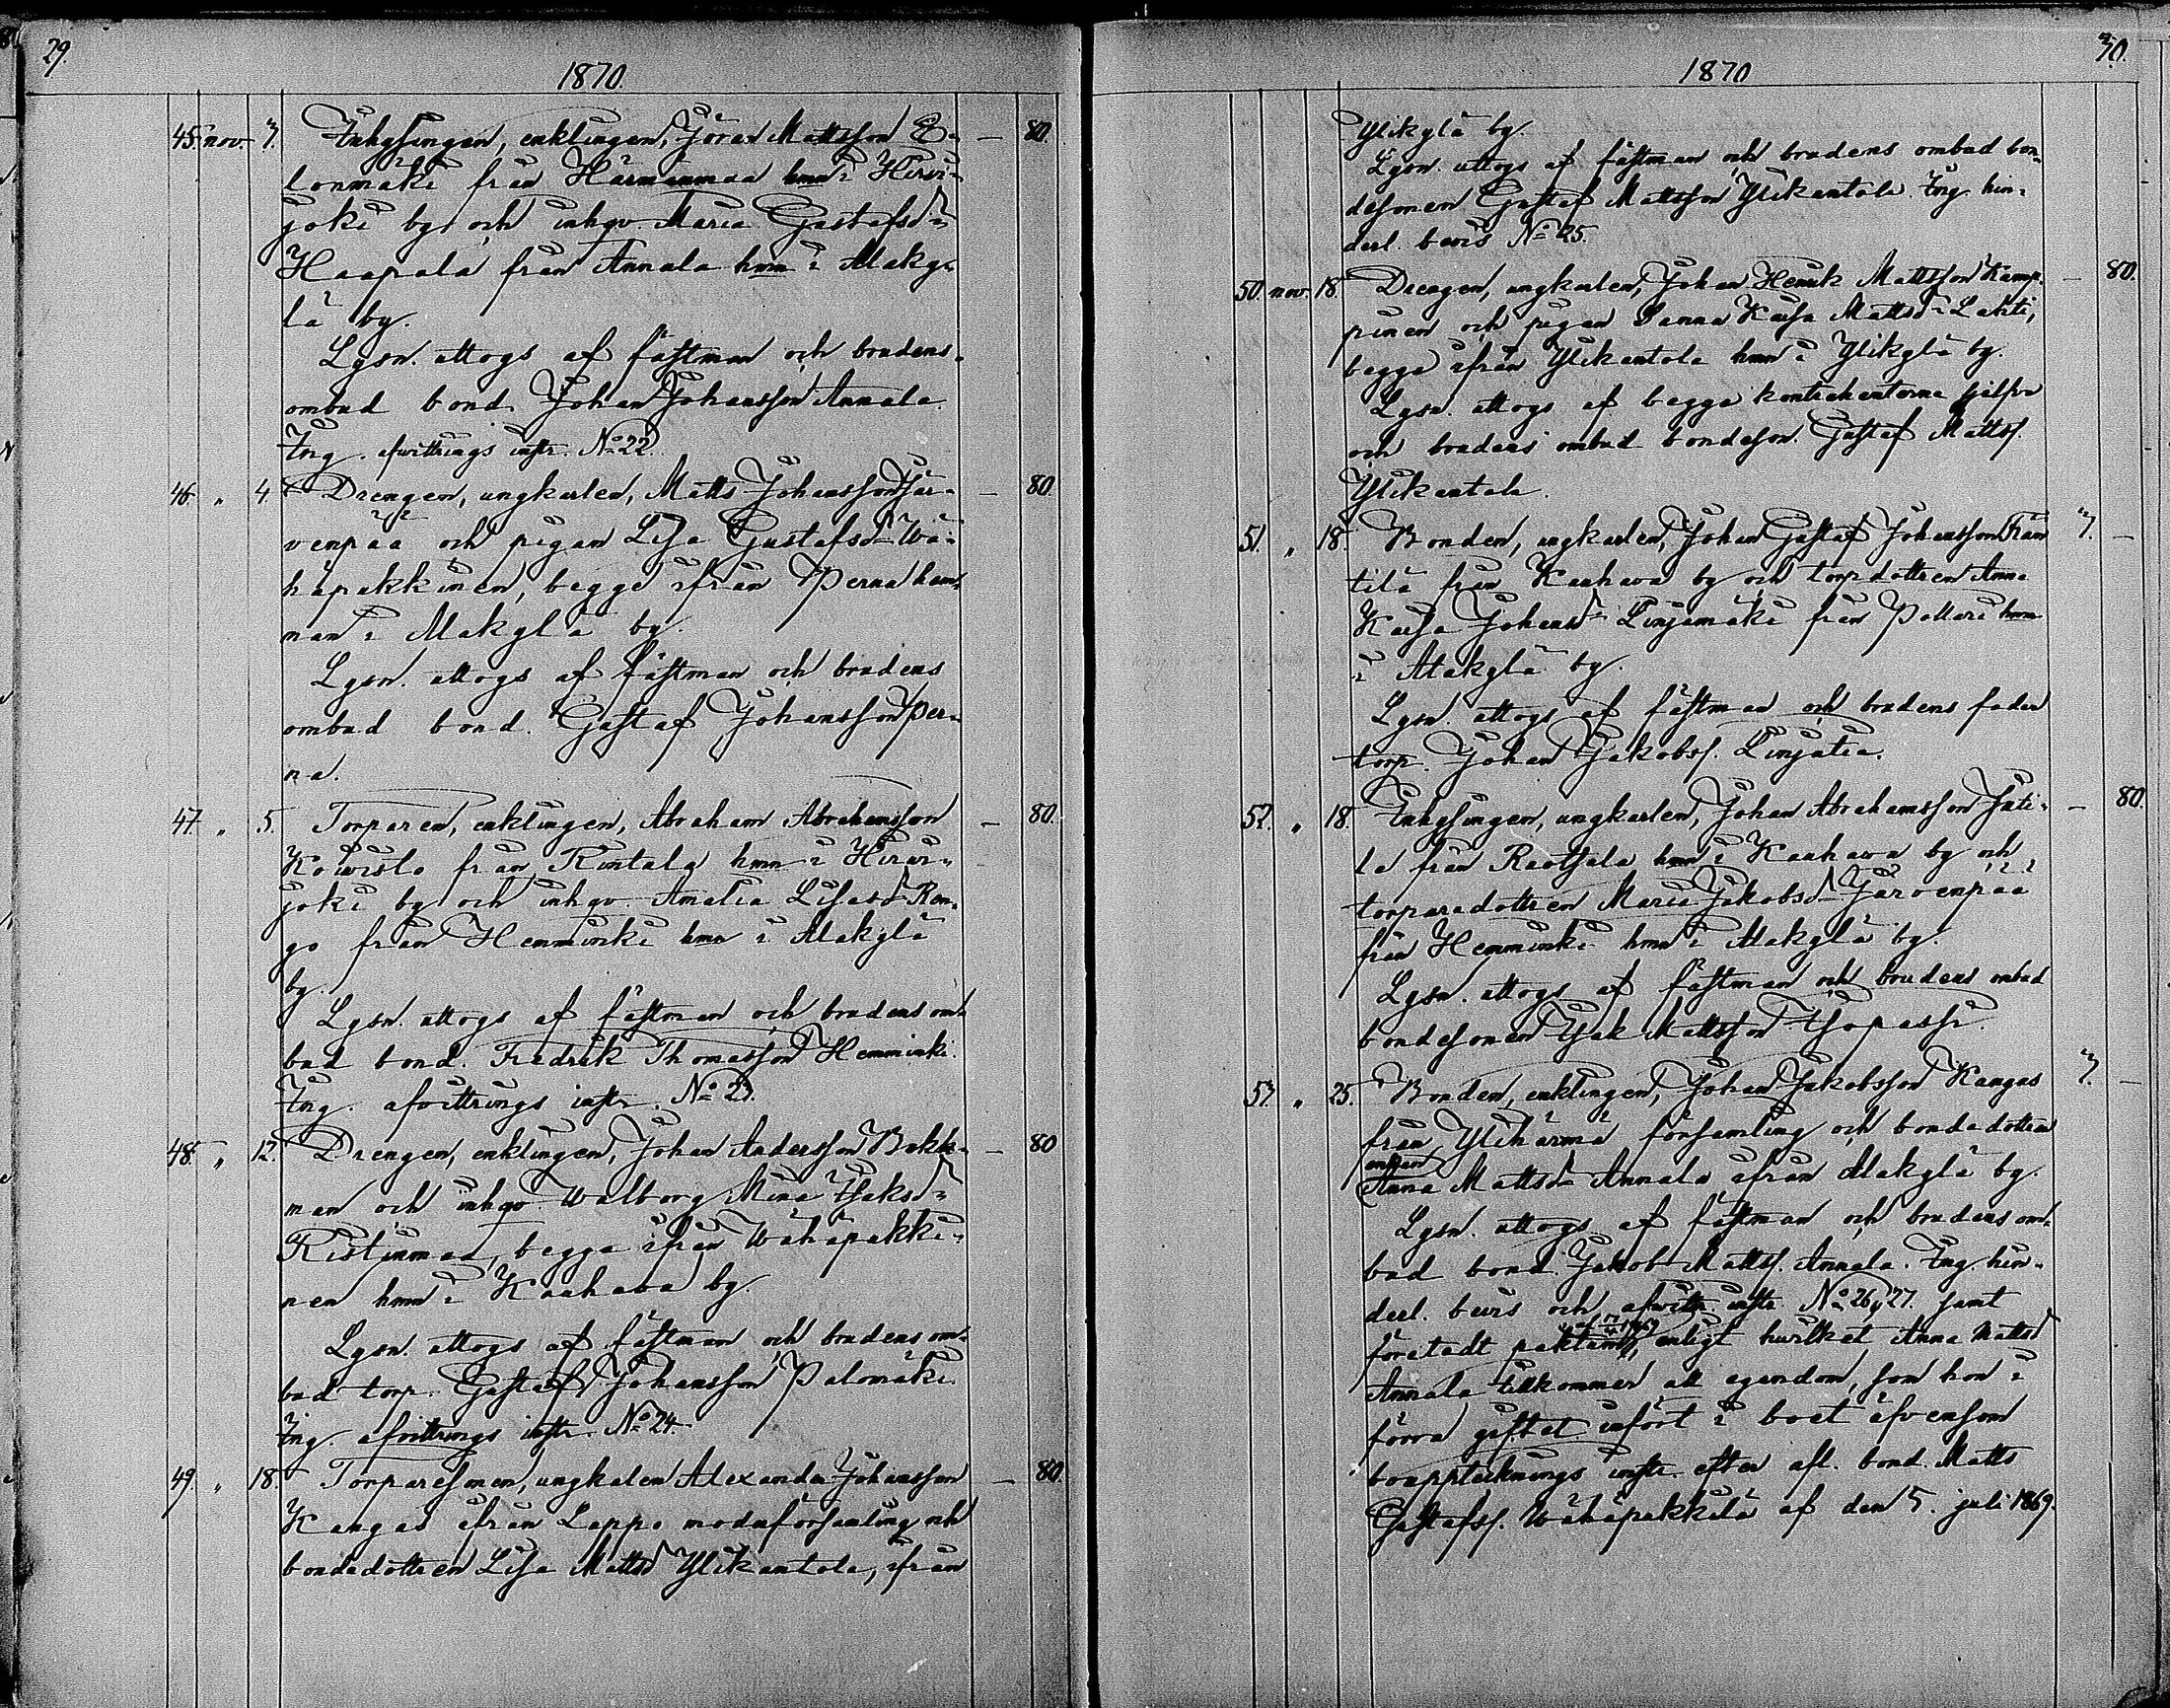 29.
1870.
45. nov. 3. Inhysingen, enklingen, Jöran Mattsson E- — 80.
lonmäki från Härmänmaa hmn i Hirvi-
joki by och inhqv. Maria Gustafsdr
Haapala från Annala hmn i Alaky-
lä by.
Lysn. uttogs af fästman och brudens
ombud bond. Johan Johansson Annala.
Ing. afvittrings instr. No 22.
46. „ 4. Drengen, ungkarlen, Matts Johansson Jär- — 80.
venpää och pigan Lisa Gustafsdr Wä-
häpakkinen, begge ifrån Perna hem-
man i Alakylä by.
Lysn. uttogs af fästman och brudens
ombud bond. Gustaf Johansson Per-
na.
47. „ 5. Torparen, enklingen, Abraham Abrahamsson — 80.
Koivisto från Rintala hmn i Hirvi-
joki by och inhqv. Amalia Lisasdr Ren-
go från Hemminki hmn i Alakylä
by.
Lysn. uttogs af fästman och brudens om-
bud bond. Fredrik Thomasson Hemminki.
Ing. afvittrings instr. No 23.
48. „ 12. Drengen, enklingen, Johan Andersson Bokk- — 80
man och inhqv. Walborg Mina Isaksdr
Ristinmaa, begge ifrån Wähäpakki-
nen hmn i Kauhava by.
Lysn. uttogs af fästman och brudens om-
bud torp. Gustaf Johansson Palomäki.
Ing. afvittrings instr. No 24.
49. „ 18. Torparesonen, ungkarlen Alexander Johansson — 80.
Kangas ifrån Lappo moderförsamling och
bondedottren Lisa Mattsdr Ylikantola, ifrån
30.
1870
Ylikylä by.
Lysn. uttogs af fästman och brudens ombud bon-
desonen Gustaf Mattsson Ylikantola. Ing. hin-
derl. bevis No 25.
50. nov. 18. Drengen, ungkarlen, Johan Henrik Mattsson Kamp- — 80.
pinen och pigan Sanna Kaisa Mattsdr Lahti,
begge ifrån Ylikantola hmn i Ylikylä by.
Lysn. uttogs af begge kontrahenterne sjelfve
och brudens ombud bondeson. Gustaf Mattss.
Ylikantola.
51. „ 18. Bonden, ungkarlen, Johan Gustaf Johansson Rän 3. —
tilä från Kauhava by och torpdottren Anna
Kaisa Johansdr Linjamäki från Pollari hmn
i Alakylä by.
Lysn. uttogs af fästman och brudens fader
torp. Johan Jakobss. Linjatie.
52. „ 18. Inhysingen, ungkarlen, Johan Abrahamsson — 80.
la från hmn i Kauhava by och
torparedottren Maria Jakobsdr Järvenpää
från Hemminki hmn i Alakylä by.
Lysn. uttogs af fästman och brudens ombud
bondesonen Isak Mattsson
53. „ 25. Bonden, enklingen, Johan Jakobsson Kangas 3. —
från Ylihärmä församling och bondedottren
enkan
Anna Mattsdr Annala ifrån Alakylä by.
Lysn. uttogs af fästman och brudens om-
bud bond. Jakob Mattss. Annala. Ing. hin-
derl. bevis och afvittr. instr. No 26, 27. samt
företedt paktum, enligt hvilket Anna Mattsdr
Annala tillkommer all egendom, som hon i
förra giftet infört i boet äfvensom
bouppteknings instr. efter afl. bond. Matts
Gustafss. Wähäpakkilä af den 5. juli 1869.